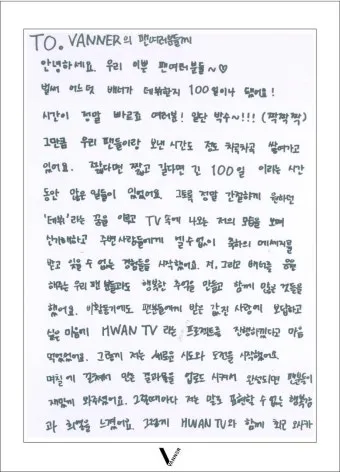 TO. VANNER의 팬여러분들께
안녕하세요. 우리 이쁜 팬여러분들~♡
벌써 어느덧 배너가 데뷔한지 100일이나 됐어요!
시간이 정말 빠르죠 여러분! 일단 박수~!!! (짝짝짝)
그만큼 우리 팬들이랑 보낸 시간도 점점 차곡차곡 쌓여가고
있어요. 짧다면 짧고 길다면 긴 100일 이라는 시간
동안 많은 일들이 있었어요. 그토록 정말 간절하게 원하던
'데뷔'라는 꿈을 이루고 TV속에 나오는 저의 모습을 보며
신기해하고 주변사람들에게 셀수없이 축하의 메세지를
받고 잊을 수 없는 경험들을 시작했어요. 저, 그리고 배너를
해주는 우리 팬분들과도 행복한 추억을 만들고 함께 많은 것들을
했어요. 비활동기에도 팬분들에게 받은 값진 사랑에 보답하고
싶은 마음에 HWAN TV 라는 프로젝트를 진행하겠다고 마음
먹었었어요. 그렇게 저는 새로운 시도와 도전을 시작했어요.
며칠에 걸쳐서 만든 결과물을 업로드 시켜서 완성되면 팬분들이
재밌게 봐주셨어요. 그럴때마다 저는 말로 표현할 수 없는 행복감
과 희열을 느꼈어요. 그렇게 HWAN TV와 함께
VANNER